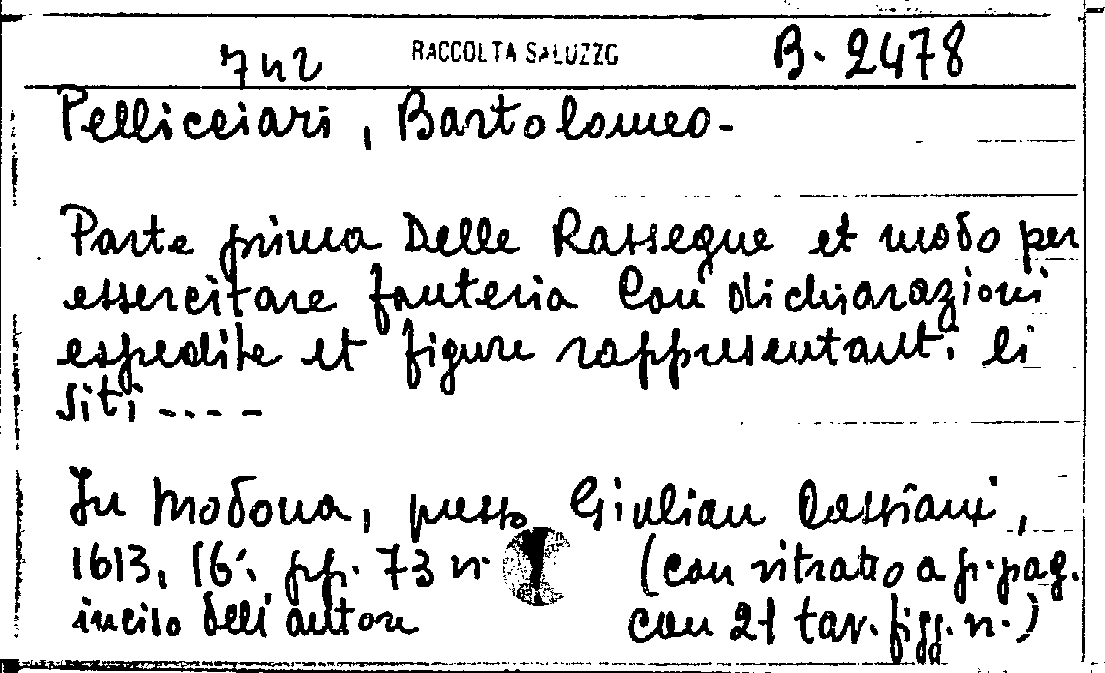 742 RACCOLTA SALUZZO B. 2478
Pelliceiari, Bartolomeo-
Parte prima Delle Rassegne et modo per
essercitare fanteria Con dichiarazioni
espedite et figure rappresentant. li
siti ----
In Modona, presso Giulian Cassiani,
1613, 16°. pp. 73 n. (con ritratto a p. pag.
inciso dell'autore con 21 tav. figg. n.)